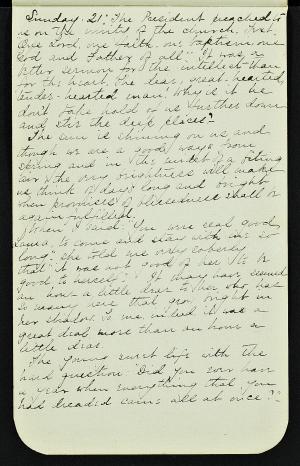 Sunday. 21. The President preached to
us on the unity of the church. Text.
"One Lord, one faith, one baptism, one
God and Father of all." It was a
better sermon for the intellect than
for the heart, the dear, great-hearted,
tender-hearted man! Why is it he
don't take hold of us further down
and stir the deep places?
The sun is shining on us and
though we are a good way from
spring and in the midst of a biting
air the very brightness will make
us think of days long and bright
when promises of pleasures shall be
again fulfilled.
When I said: "You were real good,
to come and stay with me so
long," she told me very soberly
that it was not good of her "to be
good to herself." It may have seemed
an hour a little dear to her who has
so many here that grow bright in
her shadow. To me, indeed it was a
great deal more than an hour a
little dear.
The young must life with the
hard question: Did you ever have
a year when everything that you
had dreaded came all at once?"